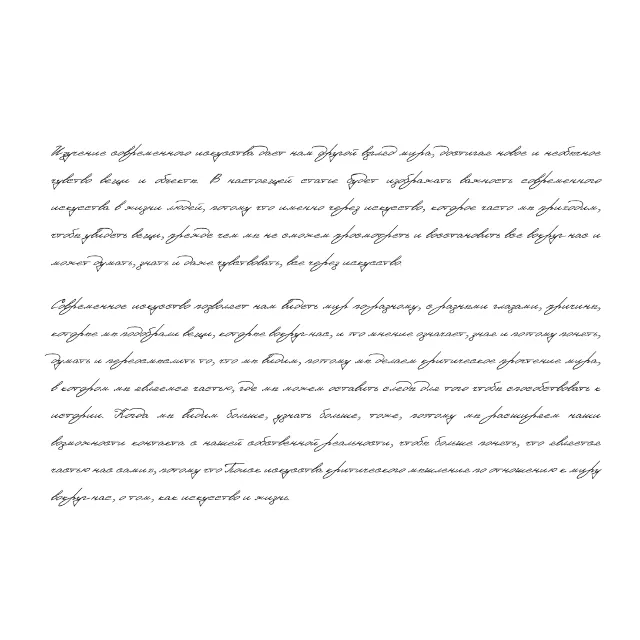 Изучение современного искусства дает нам другой взгляд мира, достигая новое и необычное
чувство вещи и объекты. В настоящей статье будет изображать важность современного
искусства в жизни людей, потому что именно через искусство, которое часто мы приходим,
чтобы увидеть вещи, прежде чем мы не сможем просмотреть и восстановить все вокруг нас и
может думать, знать и даже чувствовать, все через искусство.
Современное искусство позволяет нам видеть мир по-разному, с разными глазами, причины,
которые мы подобрали вещи, которые вокруг-нас, и то мнение означает, зная и потому понять,
думать и переосмыслить то, что мы видим, потому мы делаем критическое прочтение мира,
в котором мы являемся частью, где мы можем оставить следы для того чтобы способствовать к
истории. Когда мы видим больше, узнать больше, тоже, поэтому мы расширяем наши
возможности контакта с нашей собственной реальности, чтобы больше понять, что является
частью нас самих, потому что Поиск искусства критического мышления по отношению к миру
вокруг-нас, о том, как искусство и жизнь.